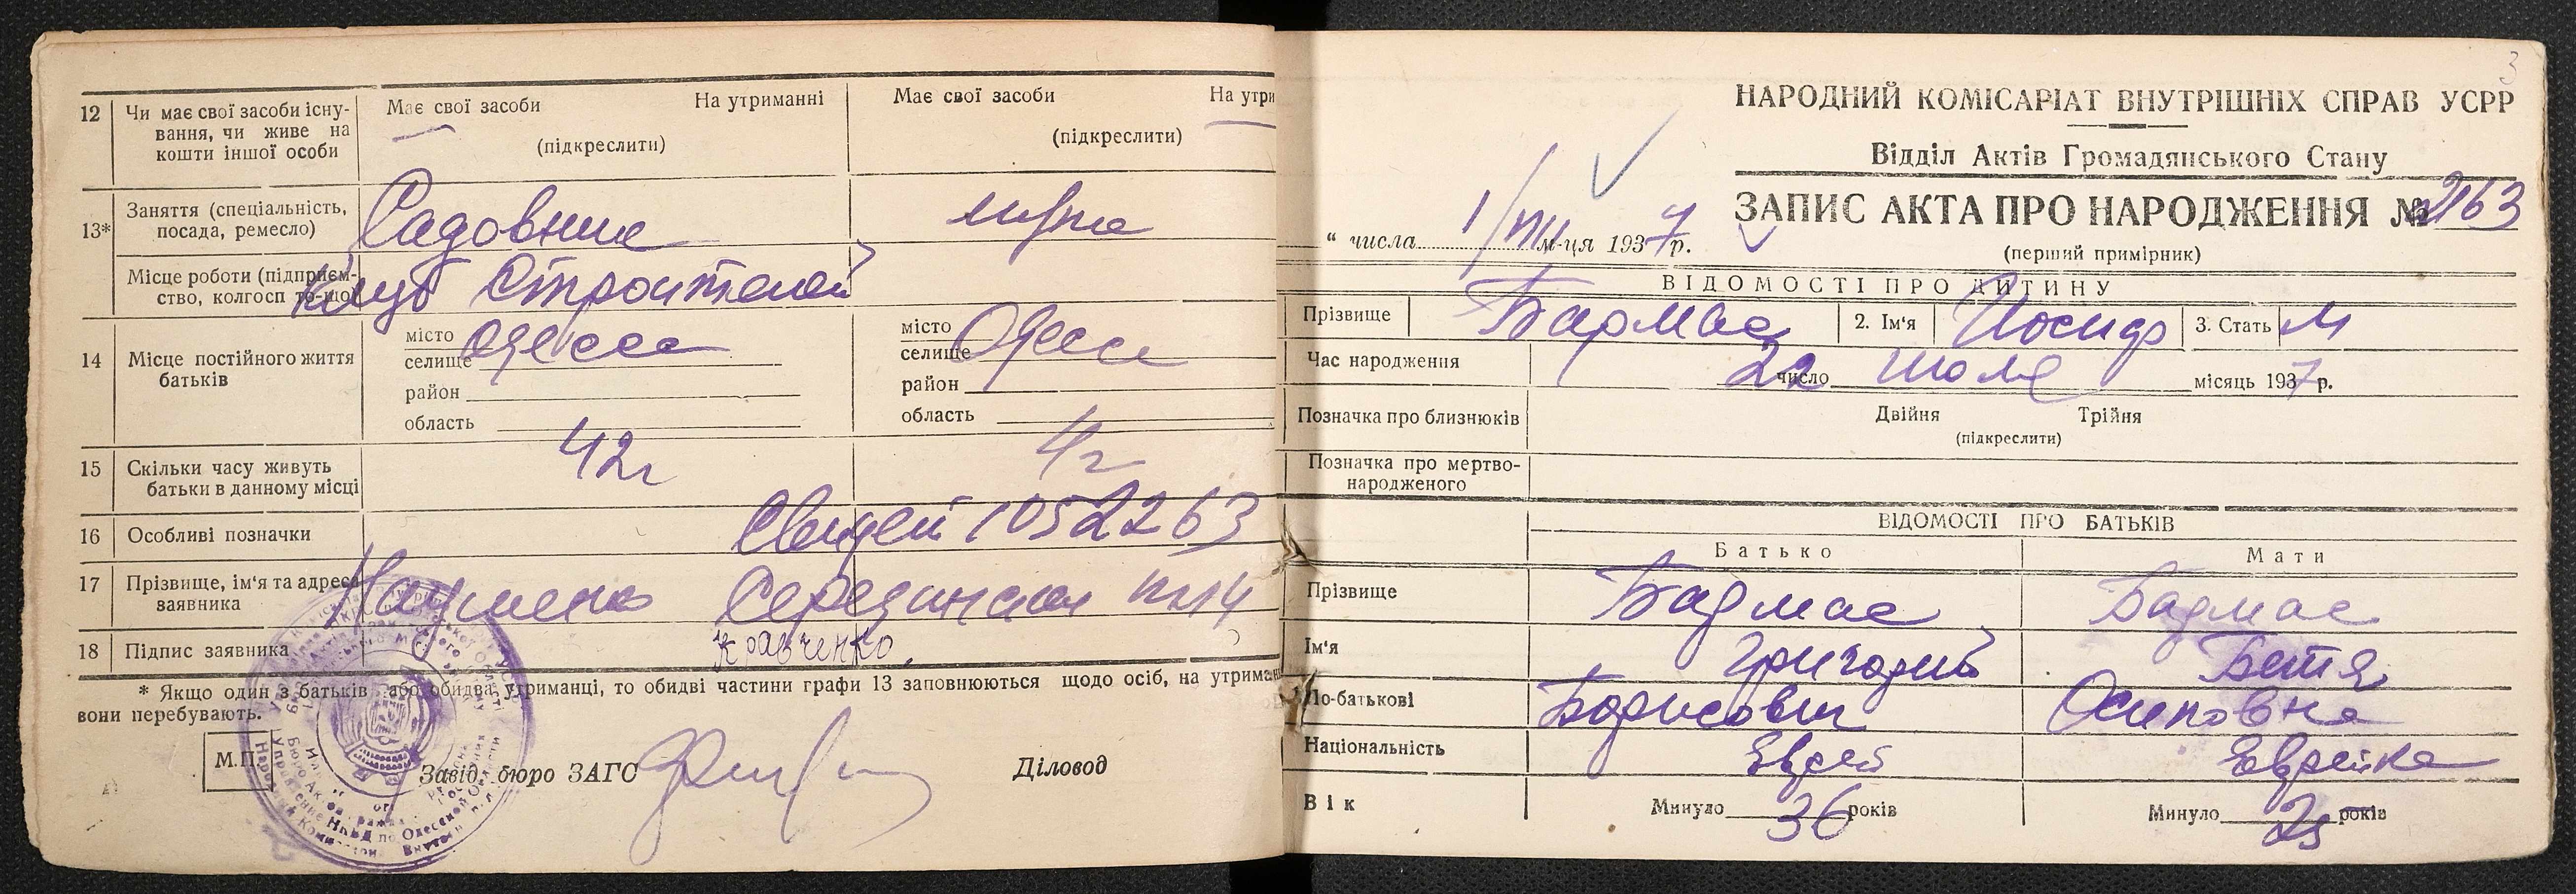 12 Чи має свої засоби існу-
вання, чи живе на
кошти іншої особи
Має свої засоби На утриманні
(підкреслити)
Має свої засоби На утри
(підкреслити)
13* Заняття (спеціальність,
посада, ремесло)
Садовник
Місце роботи (підприєм-
ство, колгосп то-що)
Клуб Строителей
14 Місце постійного життя
батьків
місто
селище Одесса
район
область
місто
селище Одесса
район
область
15 Скільки часу живуть
батьки в данному місці
12г 4г
16 Особливі позначки
1052263
17 Прізвище, ім'я та адреса
заявника
18 Підпис заявника
Кравченко
* Якщо один з батьків або обидва утриманці, то обидві частини графи 13 заповнюються щодо осіб, на утриман
вони перебувають.
М.П. Завід. бюро ЗАГС Діловод
3
НАРОДНИЙ КОМІСАРІАТ ВНУТРІШНІХ СПРАВ УСРР
Відділ Актів Громадянського Стану
ЗАПИС АКТА ПРО НАРОДЖЕННЯ № 2163
“ числа 1/VIII м-ця 1937 р.
(перший примірник)
ВІДОМОСТІ ПРО ДИТИНУ
Прізвище Бармас 2. Ім'я Иосиф 3. Стать М
Час народження 22 число июля місяць 1937 р.
Позначка про близнюків Двійня Трійня
(підкреслити)
Позначка про мертво-
народженого
ВІДОМОСТІ ПРО БАТЬКІВ
Батько Мати
Прізвище Бармас Бармас
Ім'я Григорий Бетя
По-батькові Борисович Осиповна
Національність Еврей Еврейка
Вік Минуло 36 років Минуло 25 років